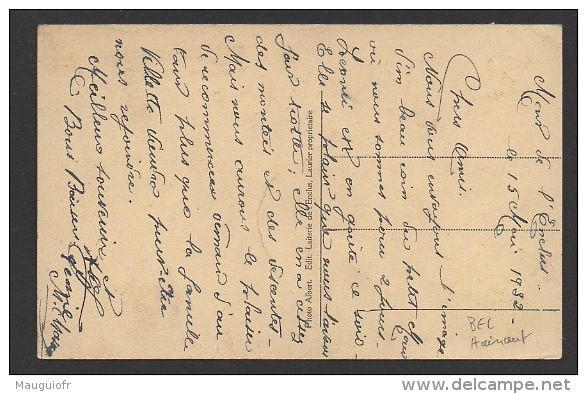 Mont de l'Enclus.
le 15 Mai 1932.
Chers Amis.
Nous vous envoyons l'image
d'un beau coin du petit
où nous sommes pour 2 jours.
est en
Elle se plaint que nous l'avons
fait trotter; elle en a
des montées et des descentes.
Mais nous aurons le plaisir
de recommencer demain d'au-
tant plus que la famille
Villette viendra peut-être
nous rejoindre.
Meilleurs souvenirs et
Bons Baisers
Photo Albert. Edit. Laiterie de l'Enclus, Laurier propriétaire
BEL
Hainaut
Mauguiofr
delcampe.net